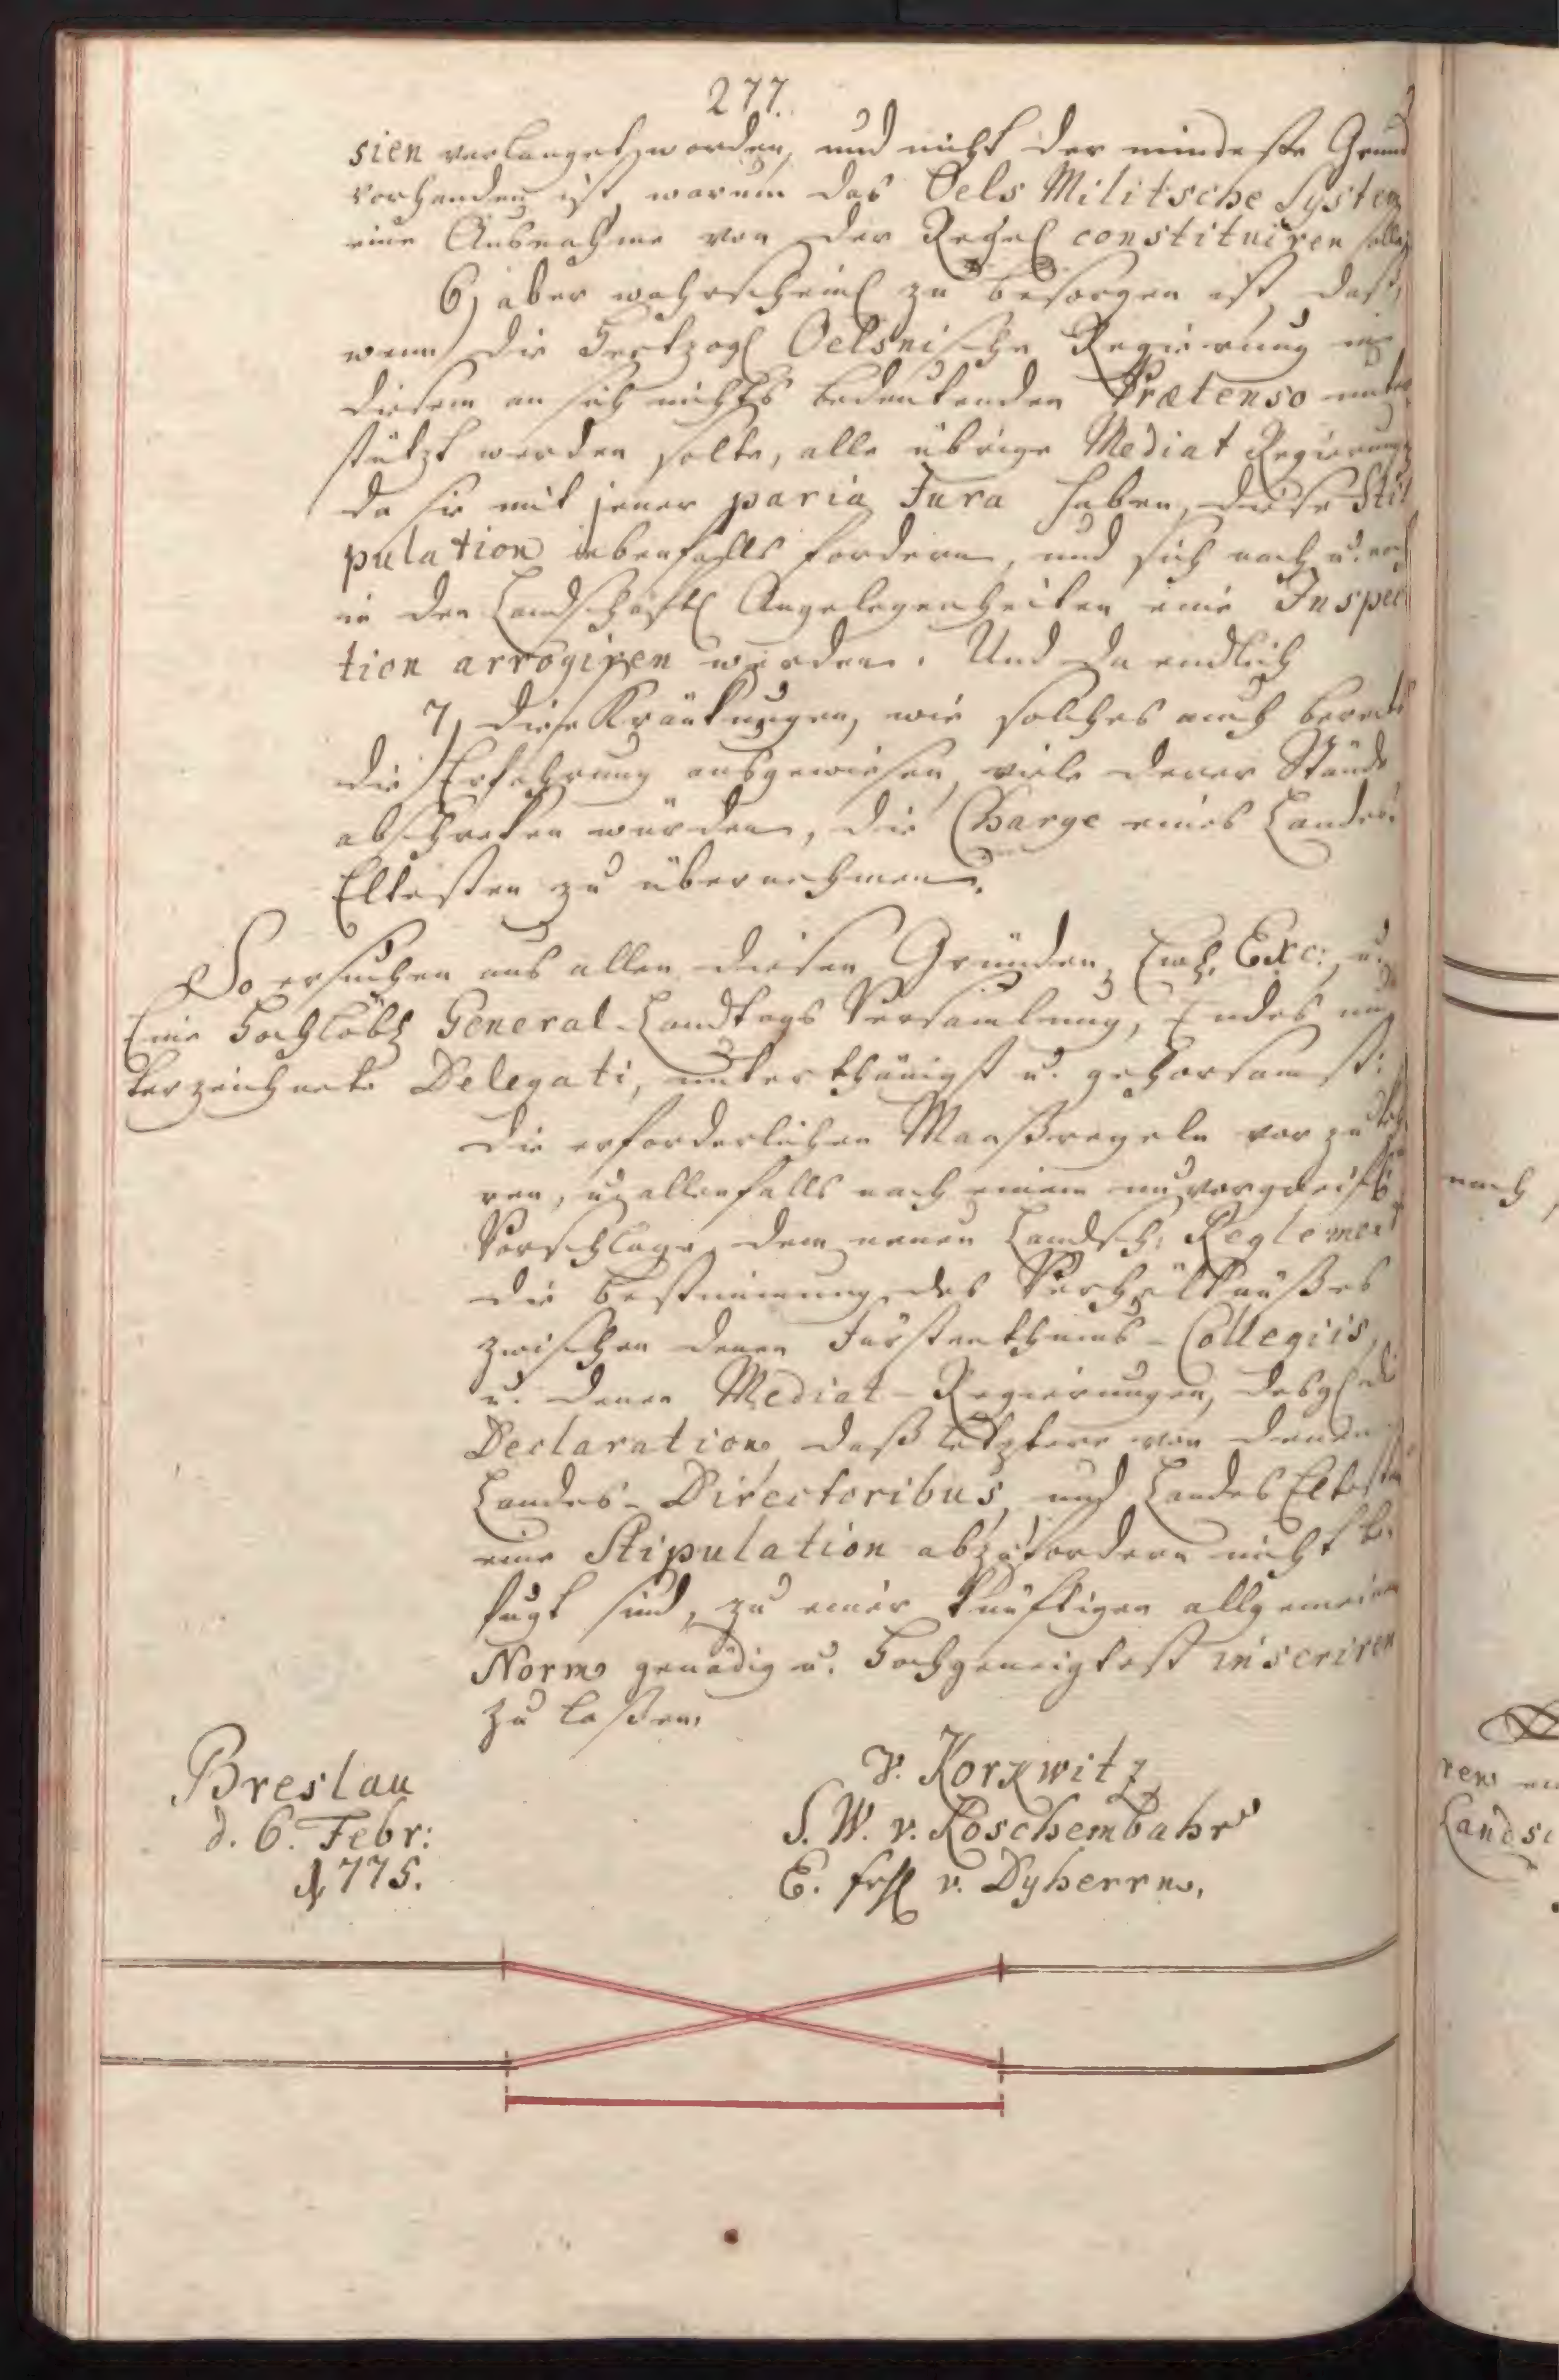 277.
sien verlanget worden, und nicht der mindeste Grund
vorhanden ist, warum das Oels Militsche System
eine Ausnahme von der Regel constituiren solle,
6, aber wahrscheinl zu besorgen ist, daß,
wenn die Hertzogl Oelsnische Regierung in
diesem an sich nichts bedeutenden Prætenso unter
stützt werden solte, alle übrige Mediat Regierung
da sie mit jener paria Jura haben, diese Sti
pulation ebenfalls fordern, und sich nach u. nach
in den Landschaftl Angelegenheiten eine Inspec
tion arrogiren werden. Und da endlich
7, diese Kränkungen, wie solches auch bereits
die Erfahrung ausgewiesen, viele derer Stände
abschreken würden, die Charge eines Landes
Eltesten zu übernehmen.
So ersuchen aus allen diesen Gründen, Ewh. Exc: u.
Eine Hochlöbl General-Landtags Versamlung, Endes un
terzeichnete Delegati, unterthänigst u. gehorsamst:
die erforderlichen Maaßregeln vor zu keh
ren, u. allenfalls nach einem unvorgreifl
Vorschlage, dem neuen Landsch: Reglement
die Bestimmung des Verhältnüßes
zwischen denen Fürstenthums-Collegiis,
u. denen Mediat-Regierungen, desgl die
Declaration, daß letztere von denen
Landes-Directoribus, und Landes Eltesten
eine Stipulation abzufordern nicht be
fugt sind, zu einer künftigen allgemeinen
Norm gnädig u. Hochgeneigtest inseriren
zu laßen.
Breslau
d. 6. Febr:
1775.
v. Korkwitz
S. W. v. Koschembahr
E. frhl v. Dyherrn.
nach,
ren
Landsc